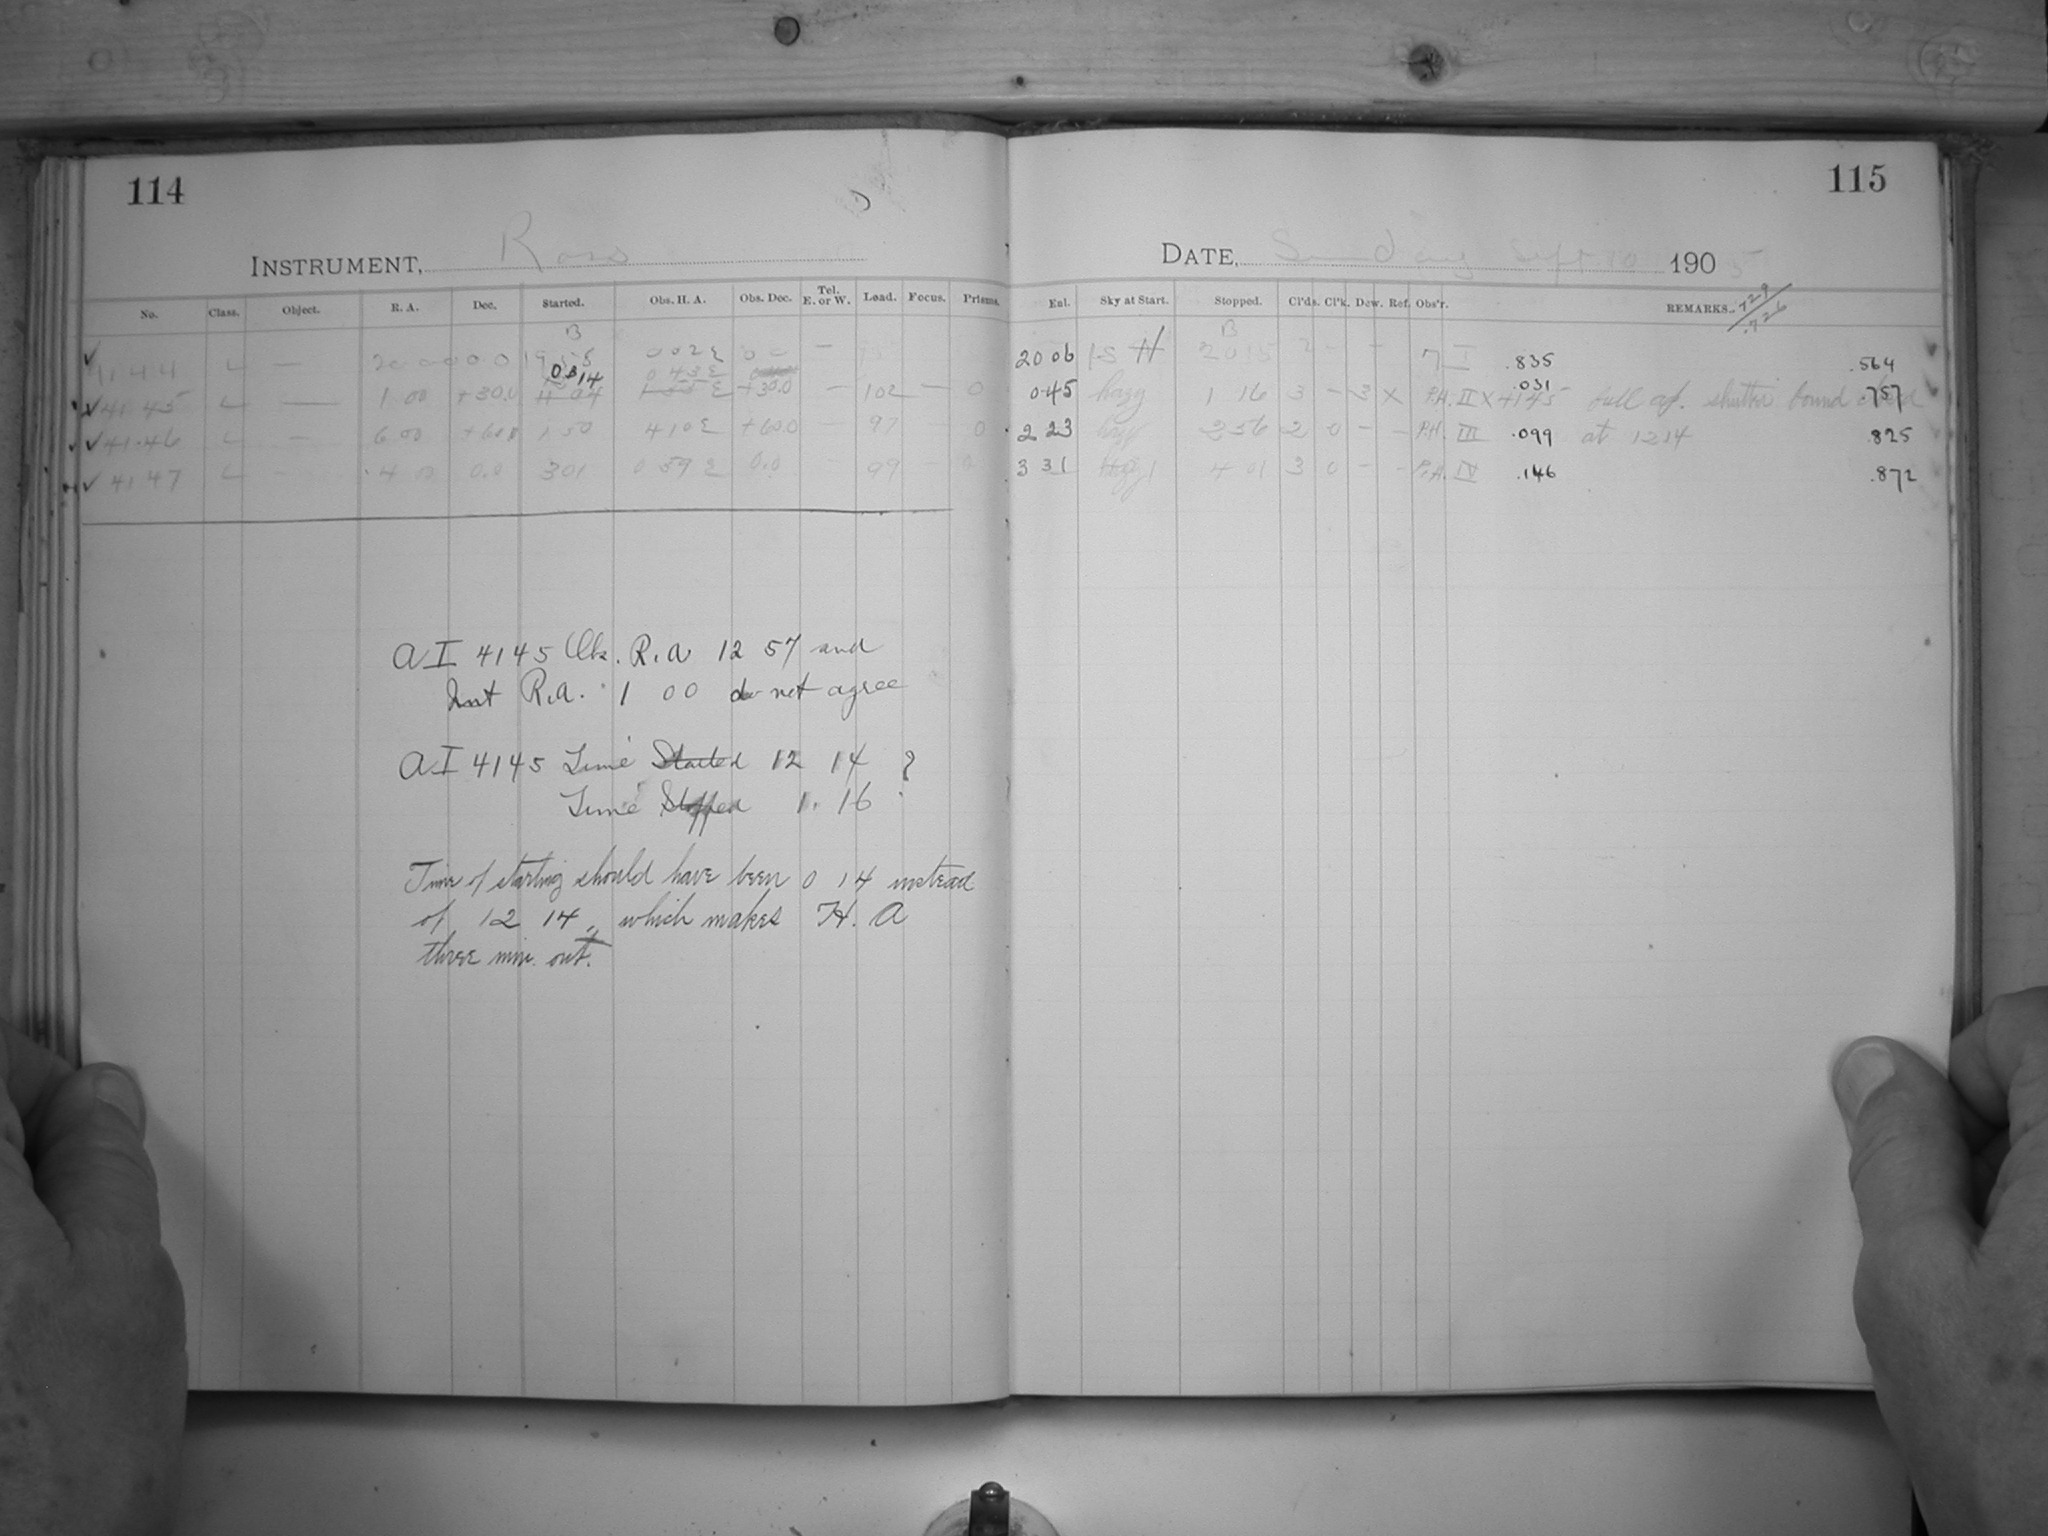 114
115
INSTRUMENT, Ross
DATE, Sunday Sept. 10 1905
No. Class. Object. R. A. Dec. Started. Obs. H. A. Obs. Dec. Tel. E. or W. Load. Focus. Prisms.
Eul. Sky at Start. Stopped. Cl'ds. Cl'k. Dew. Ref. Obs'r. REMARKS. .729 / .726
B
B
4144 L — 20 00 0.0 19 55 0 02 E 0 0 —
20 06 2015 2 - - I .835 .564
0 14 0 43 E
4145 L — 1 00 +30.0 +30.0 — 102 — 0
0 45 hazy 1 16 3 — 3 X P.H. II X .031 full ap. shutter found closed .757
4146 L — 6 00 +60.0 1 50 4 10 E +60.0 — 97 — 0
2 23 hazy 2 56 2 0 - - P.H. III .099 at 12 14 .825
4147 L — 4 00 0.0 3 01 0 59 E 0.0 — 99 — 0
3 31 hazy 4 01 3 0 - - P.H. IV .146 .872
A I 4145 Obs. R.A 12 57 and
Inst R.A. 1 00 do not agree
A I 4145 Time Started 12 14 ?
Time Stopped 1. 16
Time of starting should have been 0 14 instead
of 12 14, which makes H. A
three min. out.